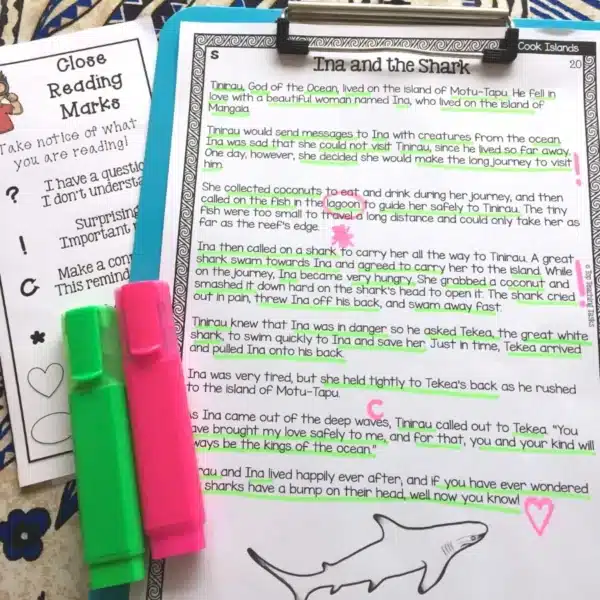 Close
Reading
Marks
Take notice of what
you are reading!
? I have a questio
I don't understa
! Surprising
Important
C Make a con
This remind
*
S
Cook Islands
20
Ina and the Shark
Tinirau, God of the Ocean, lived on the island of Motu-Tapu. He fell in
love with a beautiful woman named Ina, who lived on the island of
Mangaia.
Tinirau would send messages to Ina with creatures from the ocean.
Ina was sad that she could not visit Tinirau, since he lived so far away.
One day, however, she decided she would make the long journey to visit
him.
!
She collected coconuts to eat and drink during her journey, and then
called on the fish in the lagoon to guide her safely to Tinirau. The tiny
fish were too small to travel a long distance and could only take her as
far as the reef's edge.
*
Ina then called on a shark to carry her all the way to Tinirau. A great
shark swam towards Ina and agreed to carry her to the island. While
on the journey, Ina became very hungry. She grabbed a coconut and
smashed it down hard on the shark's head to open it. The shark cried
out in pain, threw Ina off his back, and swam away fast.
!
© Top Teaching Tasks
Tinirau knew that Ina was in danger so he asked Tekea, the great white
shark, to swim quickly to Ina and save her. Just in time, Tekea arrived
and pulled Ina onto his back.
Ina was very tired, but she held tightly to Tekea's back as he rushed
to the island of Motu-Tapu.
C
As Ina came out of the deep waves, Tinirau called out to Tekea. "You
ave brought my love safely to me, and for that, you and your kind will
ways be the kings of the ocean."
rau and Ina lived happily ever after, and if you have ever wondered
sharks have a bump on their head, well now you know!